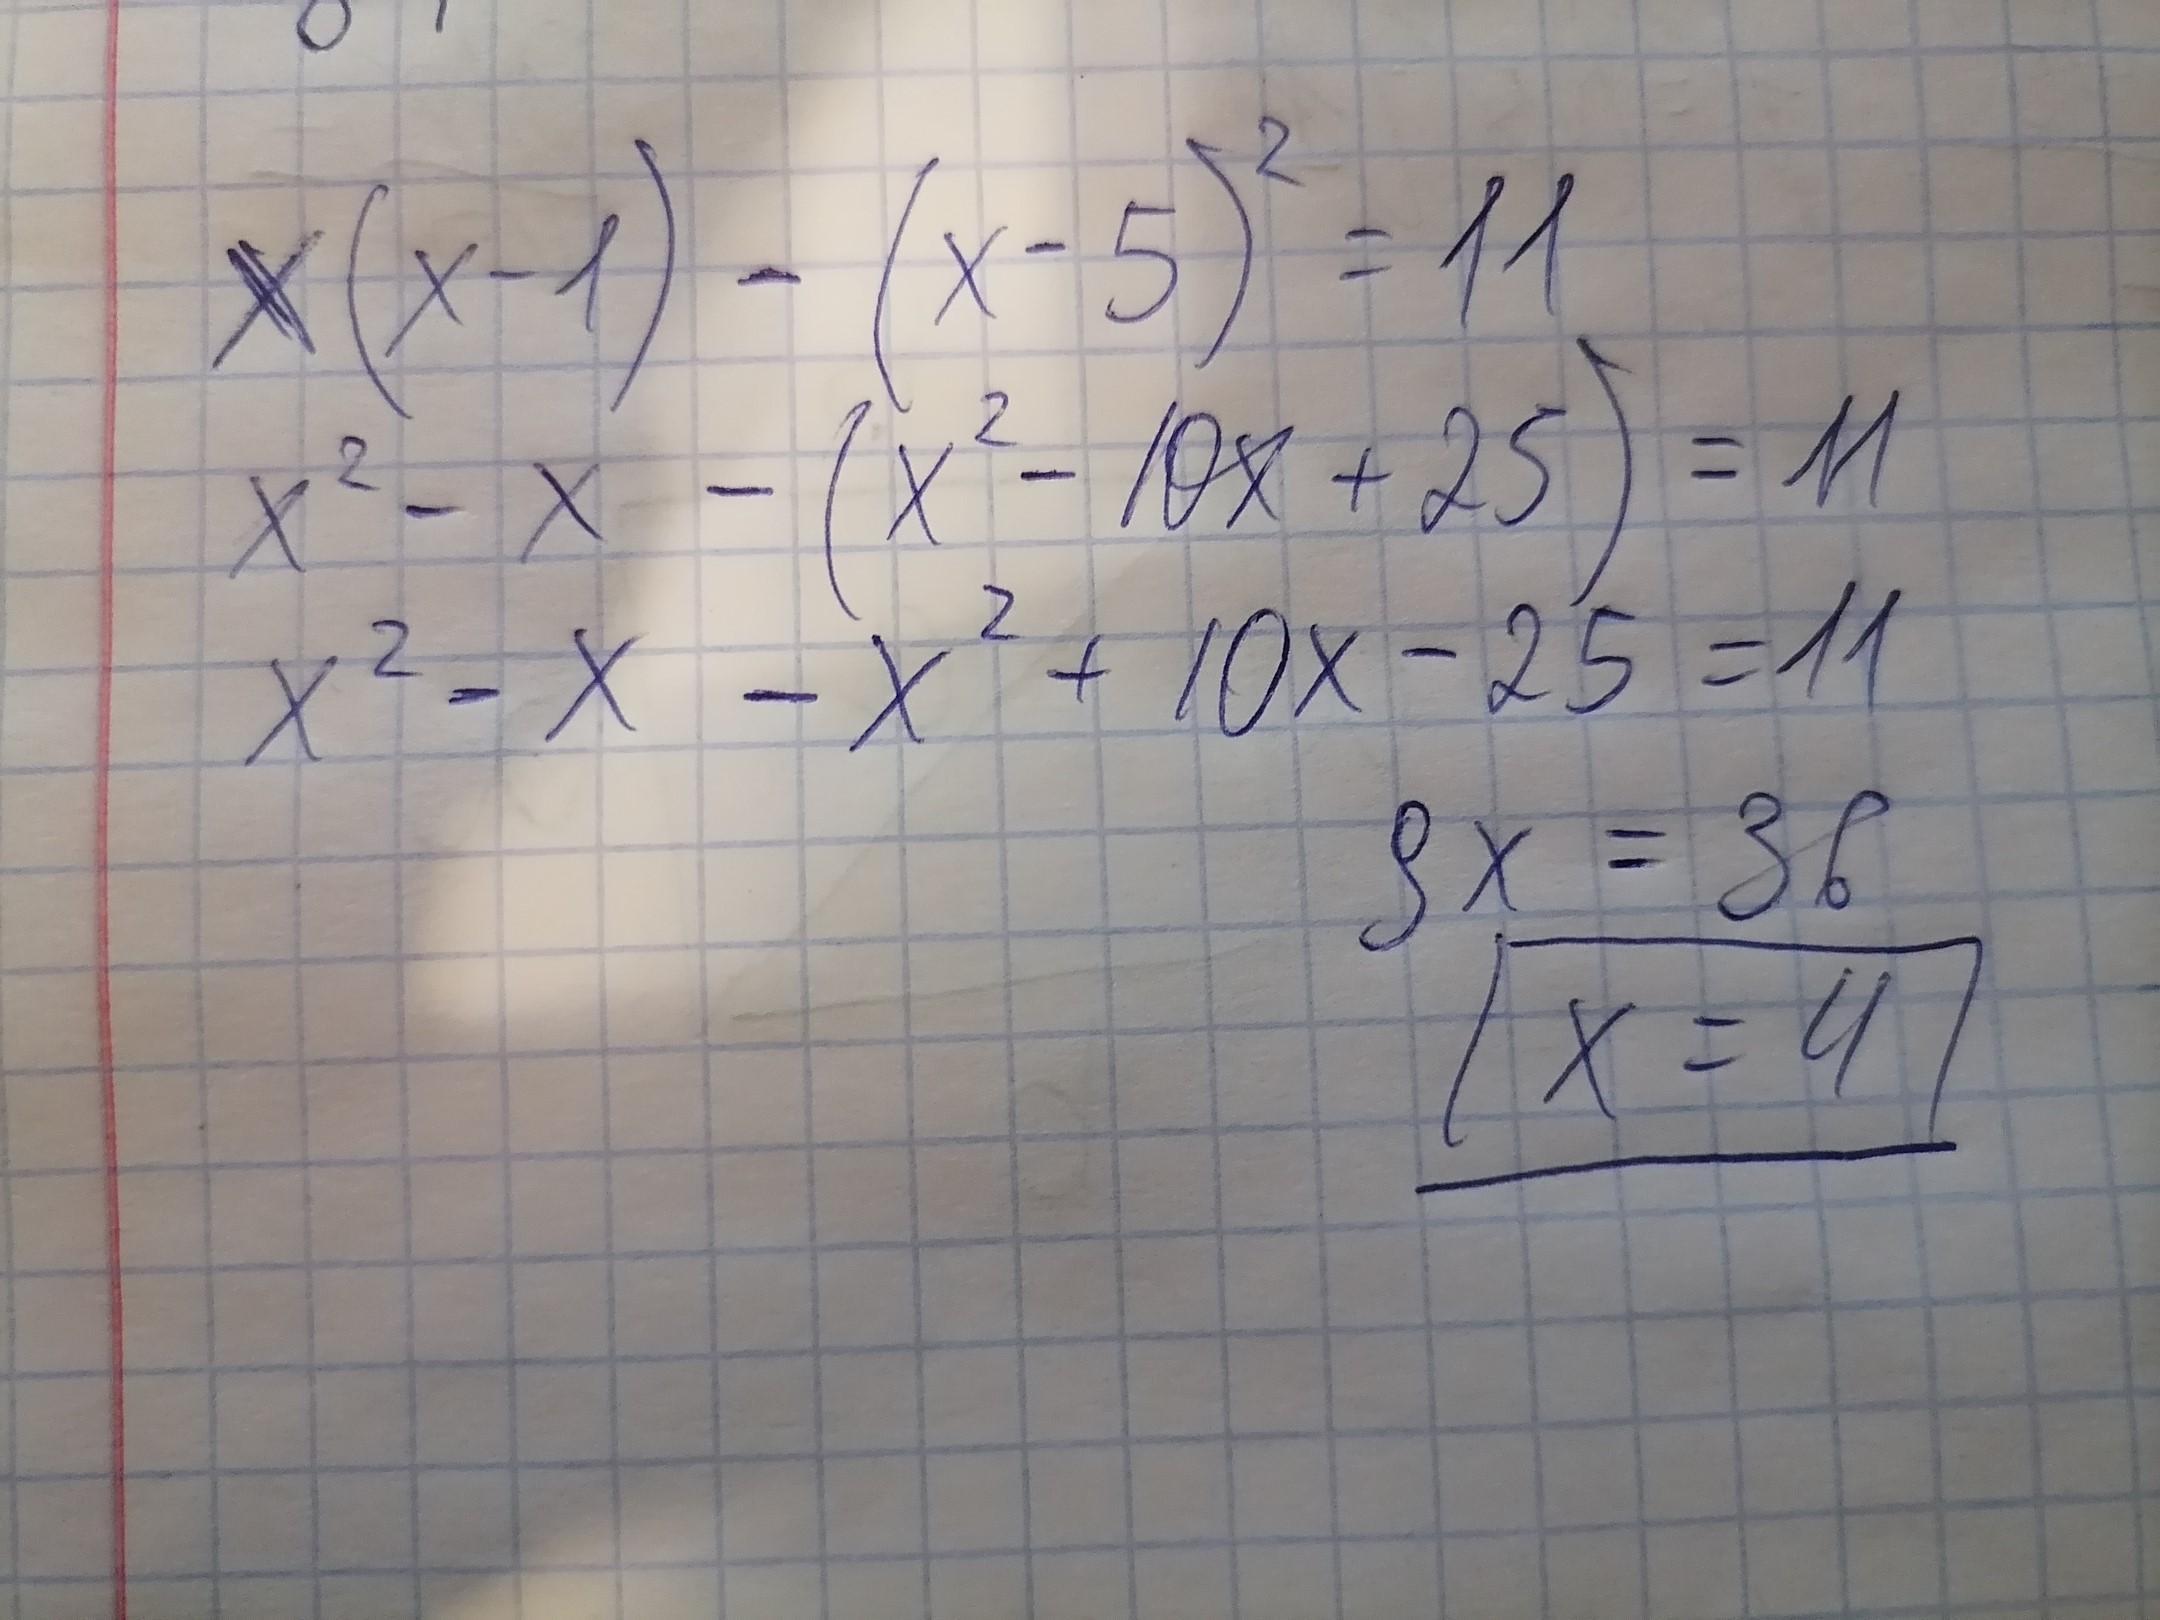 x(x-1) - (x-5)² = 11
x² - x - (x² - 10x + 25) = 11
x² - x - x² + 10x - 25 = 11
9x = 36
x = 4